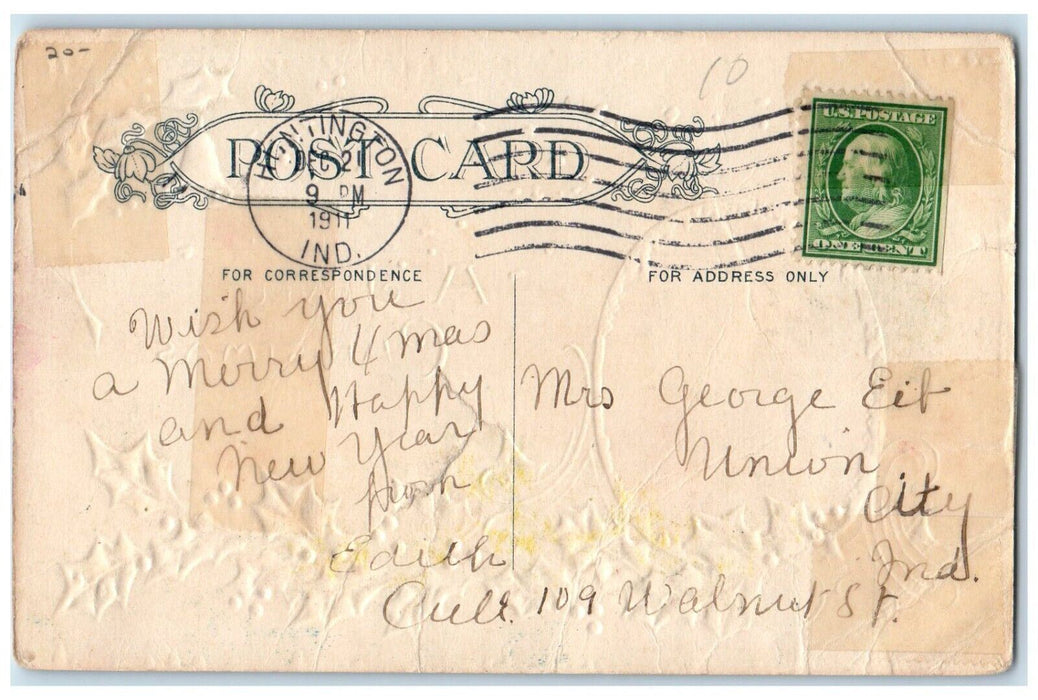 20-
10
POST CARD
HUNTINGTON
DEC 2
9 PM
1911
IND.
U.S. POSTAGE
ONE CENT
FOR CORRESPONDENCE
FOR ADDRESS ONLY
Wish you
a Merry Xmas
and Happy
New Year
from
Edith
Mrs George Eib
Union
City
Ind.
109 Walnut St.